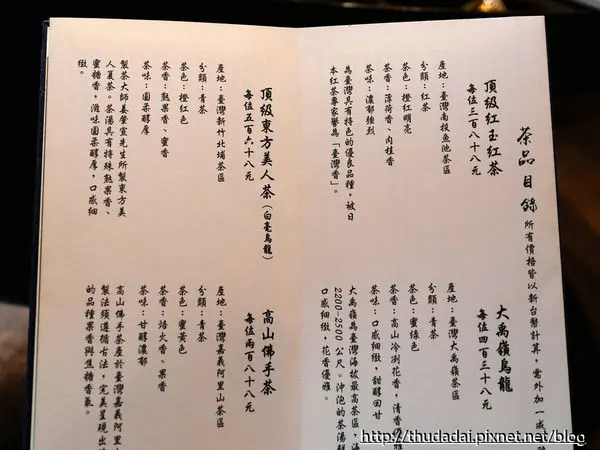 茶品目錄 所有價格皆以新台幣計算,需外加一成
頂級紅玉紅茶
每位三百八十八元
產地:臺灣南投魚池茶區
分類:紅茶
茶色:橙紅明亮
茶香:薄荷香、肉桂香
茶味:濃郁強烈
為臺灣具有特色的優良品種,被日
本紅茶專家譽為「臺灣香」。
大禹嶺烏龍
每位四百三十八元
產地:臺灣大禹嶺茶區
分類:青茶
茶色:蜜綠色
茶香:高山冷冽花香,清香優雅
茶味:口感細緻,甜醇回甘
大禹嶺為臺灣海拔最高茶區,海
2200-2500 公尺。沖泡的茶湯鮮
口感細緻,花香優雅。
頂級東方美人茶(白毫烏龍)
每位五百六十八元
產地:臺灣新竹北埔茶區
分類:青茶
茶色:橙紅色
茶香:熟果香、蜜香
茶味:圓柔醇厚
製茶大師姜肇宣先生所製東方美
人夏茶。茶湯具有特殊熟果香、
蜜糖香,滋味圓柔醇厚,口感細
緻。
高山佛手茶
每位兩百八十八元
產地:臺灣嘉義阿里山茶區
分類:青茶
茶色:蜜黃色
茶香:焙火香、果香
茶味:甘醇濃郁
高山佛手茶產於臺灣嘉義阿里山
製法須遵循古法,完美呈現出
的品種果香與焦糖香氣。
http://thudadai.pixnet.net/blog